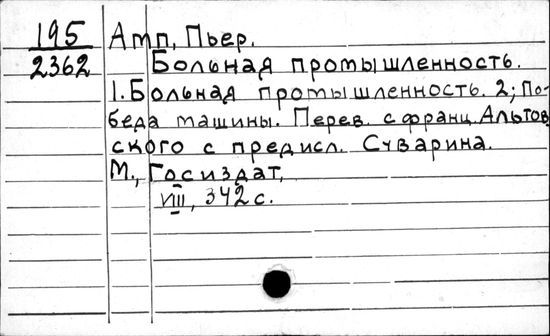 195
2362
Амп, Пьер.
Больная промышленность.
1. Больная промышленность. 2; По-
беда машины. Перев. с франц. Альтов
ского с предисл. Суварина.
М., Госиздат,
VIII, 342 с.